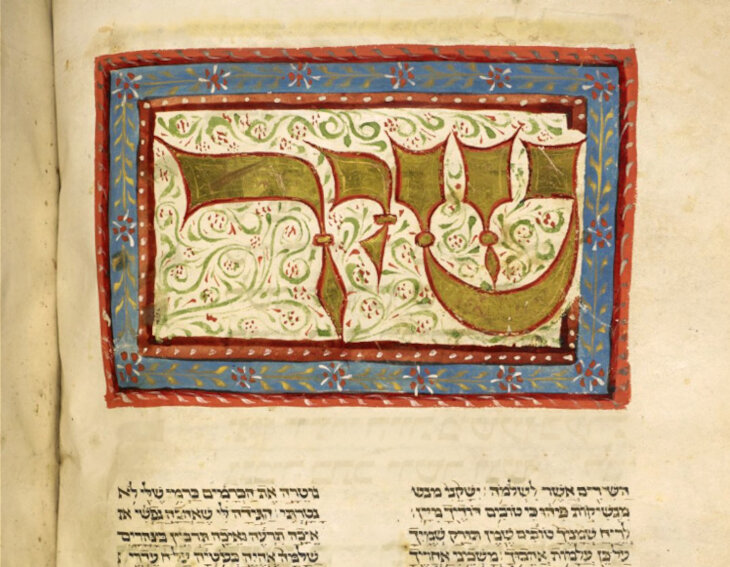 שיר
השירים אשר לשלמה ישקני מנש
מנשיקות פיהו כי טובים דודיך מיין
לריח שמניך טובים שמן תורק שמיך
על כן עלמות אהבוך משכני אחריך
נוטרה את הכרמים כרמי שלי לא
נטרתי הגידה לי שאהבה נפשי אי
איכה תרעה איכה תרביץ בצהרים
שלמה אהיה כעטיה על עדרי